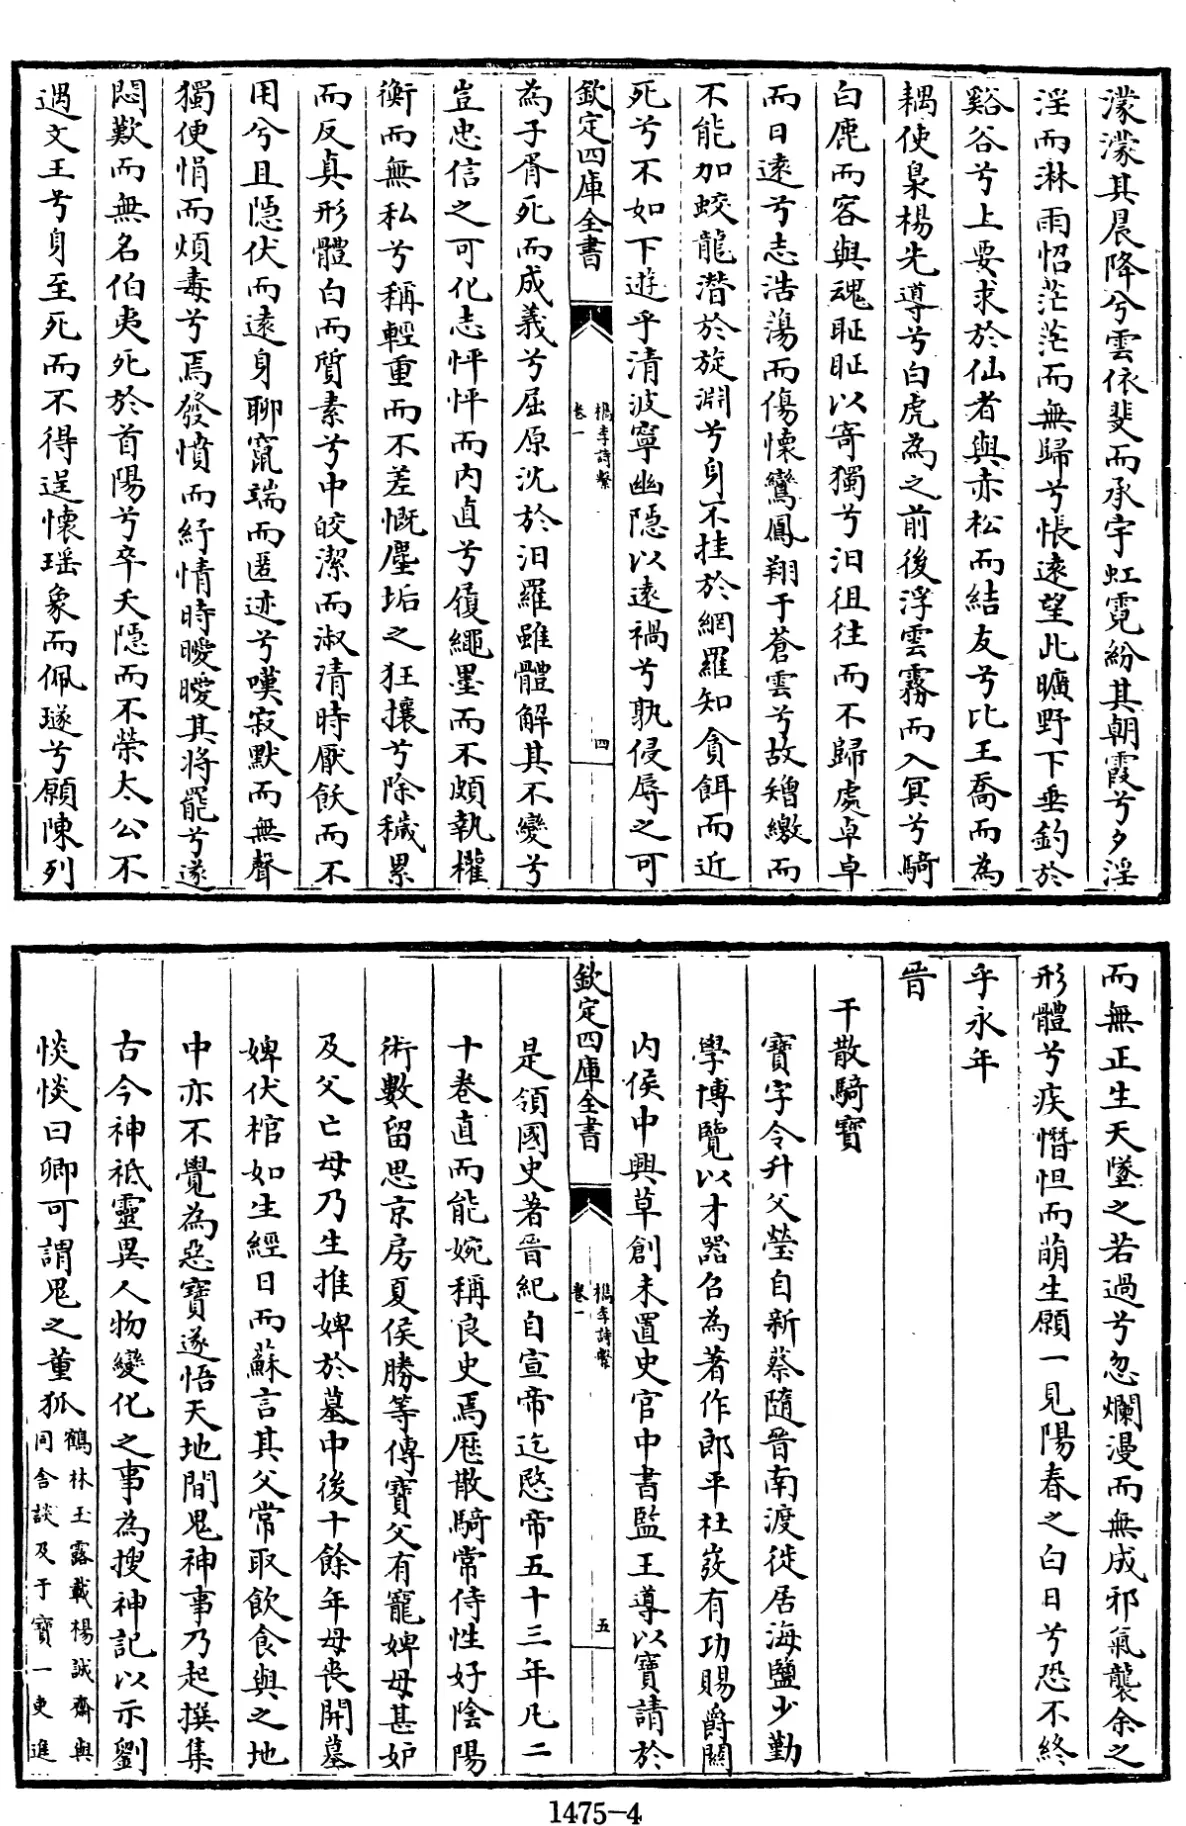 濛濛其晨降兮雲依斐而承宇虹霓紛其朝霞兮夕淫
淫而淋雨怊茫茫而無歸兮悵遠望此曠野下垂釣於
谿谷兮上要求於仙者與赤松而結友兮比王喬而為
耦使梟楊先導兮白虎為之前後浮雲霧而入冥兮騎
白鹿而容與魂眐眐以寄獨兮汨徂往而不歸處卓卓
而日遠兮志浩蕩而傷懷鸞鳳翔于蒼雲兮故矰繳而
不能加蛟龍潛於旋淵兮身不挂於網羅知貪餌而近
死兮不如下遊乎清波寧幽隱以遠禍兮孰侵辱之可
欽定四庫全書
檇李詩繫
卷一
四
為子胥死而成義兮屈原沈於汨羅雖體解其不變兮
豈忠信之可化志怦怦而内直兮履繩墨而不頗執權
衡而無私兮稱輕重而不差慨塵垢之狂攘兮除穢累
而反真形體白而質素兮中皎潔而淑清時厭飫而不
用兮且隱伏而遠身聊竄端而匿迹兮嘆寂默而無聲
獨便悁而煩毒兮焉發憤而紓情時曖曖其將罷兮遂
悶歎而無名伯夷死於首陽兮卒夭隱而不榮太公不
遇文王兮身至死而不得逞懷瑶象而佩璲兮願陳列
而無正生天墜之若過兮忽爛漫而無成邪氣襲余之
形體兮疾憯怛而萌生願一見陽春之白日兮恐不終
乎永年
晉
干散騎寶
寶字令升父瑩自新蔡隨晉南渡徙居海鹽少勤
學博覽以才器召為著作郎平杜弢有功賜爵關
内侯中興草創未置史官中書監王導以寶請於
欽定四庫全書
檇李詩繫
卷一
五
是領國史著晉紀自宣帝迄愍帝五十三年凡二
十卷直而能婉稱良史焉歴散騎常侍性好陰陽
術數留思京房夏侯勝等傳寶父有寵婢母甚妒
及父亡母乃生推婢於墓中後十餘年母喪開墓
婢伏棺如生經日而蘇言其父常取飲食與之地
中亦不覺為惡寶遂悟天地間鬼神事乃起撰集
古今神祗靈異人物變化之事為搜神記以示劉
惔惔曰卿可謂鬼之董狐
鶴林玉露載楊誠齋與
同舍談及于寶一吏進
1475-4